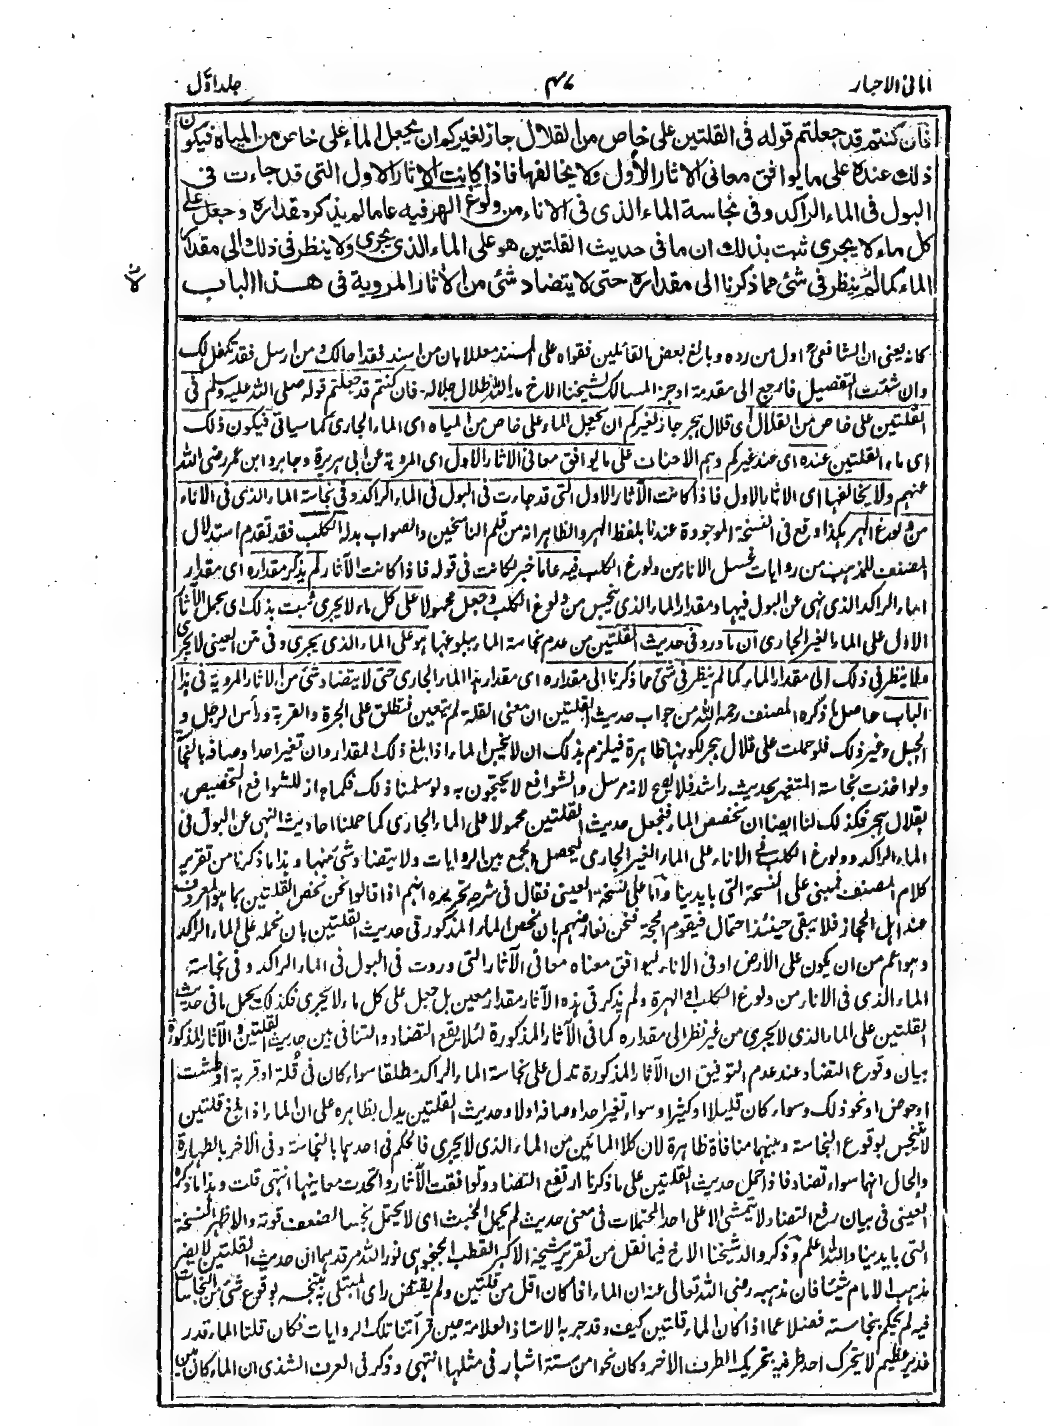 امانی الاحبار
۴۷
جلد اوّل
فان كنتم قد جعلتم قوله فى القلتين على خاص من القلال جاز لغيركم ان يجعل الماء على خاص من المياه فيكون
ذلك عنده على ما يوافق معانى الاثار الأول ولا يخالفها فاذا كانت الاثار الاول التى قد جاءت فى
البول فى الماء الراكد وفى نجاسة الماء الذى فى الاناء من ولوغ الهر فيه عاما لم يذكر مقداره وجعل على
كل ماء لا يجرى ثبت بذلك ان ما فى حديث القلتين هو على الماء الذى يجرى ولا ينظر فى ذلك الى مقدار
الماء كما لم ينظر فى شئ مما ذكرنا الى مقداره حتى لا يتضاد شئ من الأثار المروية فى هذا الباب
كانه يعنى ان الشافعى اول من رده وبالغ بعض القائلين فقواه على المسند معللا بان من اسند فقد احالك ومن ارسل فقد تكفل لك
وان شئت التفصيل فارجع الى مقدمة اوجز المسالك لشيخنا الاخ مد الله ظلال جلاله۔ فان كنتم قد جعلتم قوله صلى الله عليه وسلم فى
القلتين على خاص من القلال أى قلال هجر جاز لغيركم ان يجعل الماء على خاص من المياه اى الماء الجارى كما سياتى فيكون ذلك
اى ماء القلتين عنده اى عند غيركم وهم الاحناف على ما يوافق معانى الاثار الاول اى المروية عن ابى هريرة وجابر وابن عمر رضى الله
عنهم ولا يخالفها اى الاثار الاول فاذا كانت الأثار الاول التى قد جاءت فى البول فى الماء الراكد وفى نجاسة الماء الذى فى الاناء
من ولوغ الهر هكذا وقع فى النسخة الموجودة عندنا بلفظ الهر والظاهر انه من قلم الناسخين والصواب بدله الكلب فقد تقدم استدلال
المصنف للمذهب من روايات غسل الاناء من ولوغ الكلب فيه عاما خبر لكانت فى قوله فاذا كانت الآثار لم يذكر مقداره اى مقدار
الماء الراكد الذى نهى عن البول فيها ومقدار الماء الذى ينجس من ولوغ الكلب وجعل محمولا على كل ماء لا يجرى ثبت بذلك اى بحمل الآثار
الاول على الماء الغير الجارى ان ما ورد فى حديث القلتين من عدم نجاسة الماء ببلوغها هو على الماء الذى يجرى وفى متن العينى لا يجرى
ولا ينظر فى ذلك الى مقدار الماء كما لم ينظر فى شئ مما ذكرنا الى مقداره اى مقدار هذا الماء الجارى حتى لا يتضاد شئ من الاثار المروية فى هذا
الباب حاصل ما ذكره المصنف رحمه الله من جواب حديث القلتين ان معنى القلة لم يتعين فتطلق على الجرة والقربة ورأس الرجل و
الجبل وغير ذلك فلو حملت على قلال هجر لكونها ظاهرة فيلزم بذلك ان لا ينجس الماء اذا بلغ ذلك المقدار وان تغير احد اوصافه بالنجاسة
ولو اخذت نجاسة المتغير بحديث راشد فلا يصح لانه مرسل والشوافع لا يحتجون به ولو سلمنا ذلك فكما جاز للشوافع التخصيص
بقلال هجر فكذلك لنا ايضا ان نخصص الماء فنجعل حديث القلتين محمولا على الماء الجارى كما حملنا احاديث النهى عن البول فى
الماء الراكد وولوغ الكلب فى الاناء على الماء الغير الجارى ليحصل الجمع بين الروايات ولا يتضاد شئ منها وهذا ما ذكرنا من تقرير
كلام المصنف فمبنى على النسخة التى بايدينا وأما على نسخة العينى فقال فى شرحه تحريره انهم اذا قالوا نحن نخص القلتين بما هو المعروف
عند اهل الحجاز فلا يبقى حينئذ احتمال فيقوم الحجة فنحن نعارضهم بان نخص الماء المذكور فى حديث القلتين بان نحمله على الماء الراكد
وهو اعم من ان يكون على الأرض او فى الاناء ليوافق معناه معانى الآثار التى وردت فى البول فى الماء الراكد وفى نجاسة
الماء الذى فى الاناء من ولوغ الكلب او الهرة ولم يذكر فى هذه الآثار مقدار معين بل جعل على كل ماء لا يجرى فكذلك يحمل ما فى حديث
القلتين على الماء الذى لا يجرى من غير نظر الى مقداره كما فى الآثار المذكورة لئلا يقع التضاد والتنافى بين حديث القلتين والآثار المذكورة
بيان وقوع التضاد عند عدم التوفيق ان الآثار المذكورة تدل على نجاسة الماء الراكد مطلقا سواء كان فى قلة او قربة او طشت
او حوض او نحو ذلك وسواء كان قليلا او كثيرا وسواء تغير احد اوصافه اولا وحديث القلتين يدل بظاهره على ان الماء اذا بلغ قلتين
لا ينجس بوقوع النجاسة وبينهما منافاة ظاهرة لان كلا المائين من الماء الذى لا يجرى فالحكم فى احدهما بالنجاسة وفى الآخر بالطهارة
والحال انهما سواء تضاد فاذا حمل حديث القلتين على ما ذكرنا ارتفع التضاد وتوافقت الآثار واتحدت معانيها انتهى قلت وهذا ما ذكره
العينى فى بيان رفع التضاد لا يتمشى الا على احد المحتملات فى معنى حديث لم يحمل الخبث اى لا يحتمل نجسا لضعف قوته والاظهر النسخة
التى بايدينا والله اعلم وذكر والد شيخنا الاخ فيما نقل من تقرير شيخه الاكبر القطب الجنجوهى نور الله مرقدهما ان حديث القلتين لا يضر
مذهب الامام شيئا فان مذهبه رضى الله تعالى عنه ان الماء اذا كان اقل من قلتين ولم يقتض راى المبتلى به تنجسه بوقوع شئ من النجاسات
فيه لم يحكم بنجاسته فضلا عما اذا كان الماء قلتين كيف وقد جربه الاستاذ العلامة حين قرأتنا تلك الروايات فكان قلتا الماء قدر
غدير عظيم لا يتحرك احد طرفيه بتحريك الطرف الاخر وكان نحوا من ستة اشبار فى مثلها انتهى وذكر فى العرف الشذى ان الماء كان بين